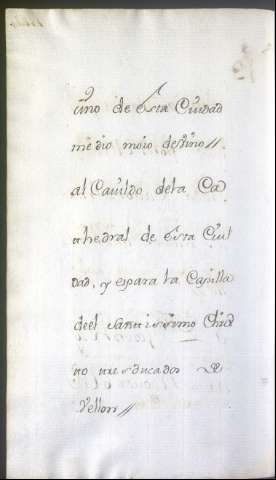 cino de esta Ciudad
medio moio de vino//
al Cavildo dela Ca
thedral de esta Ciu
dad, y es para la Capilla
de el Santissimo Chris
to tres ducados de
Vellon//